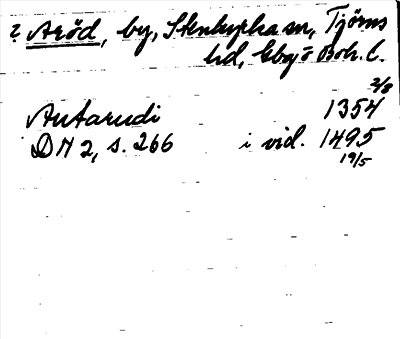 ? Aröd, by, Stenkyrka sn, Tjörns
hd, Gbg o Boh. l.
2/8
Antarudi 1354
DN 2, s. 266 i vid. 1495
19/5